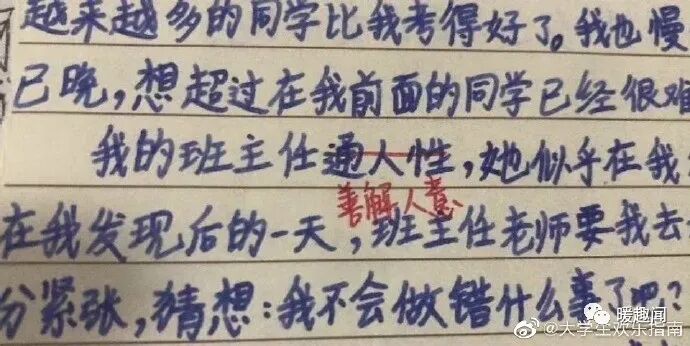 越来越多的同学比我考得好了。我也慢
已晚，想超过在我前面的同学已经很难
我的班主任通人性，她似乎在我
善解人意
在我发现后的一天，班主任老师要我去
分紧张，猜想：我不会做错什么事了吧？
暖趣闻
@大学生欢乐指南